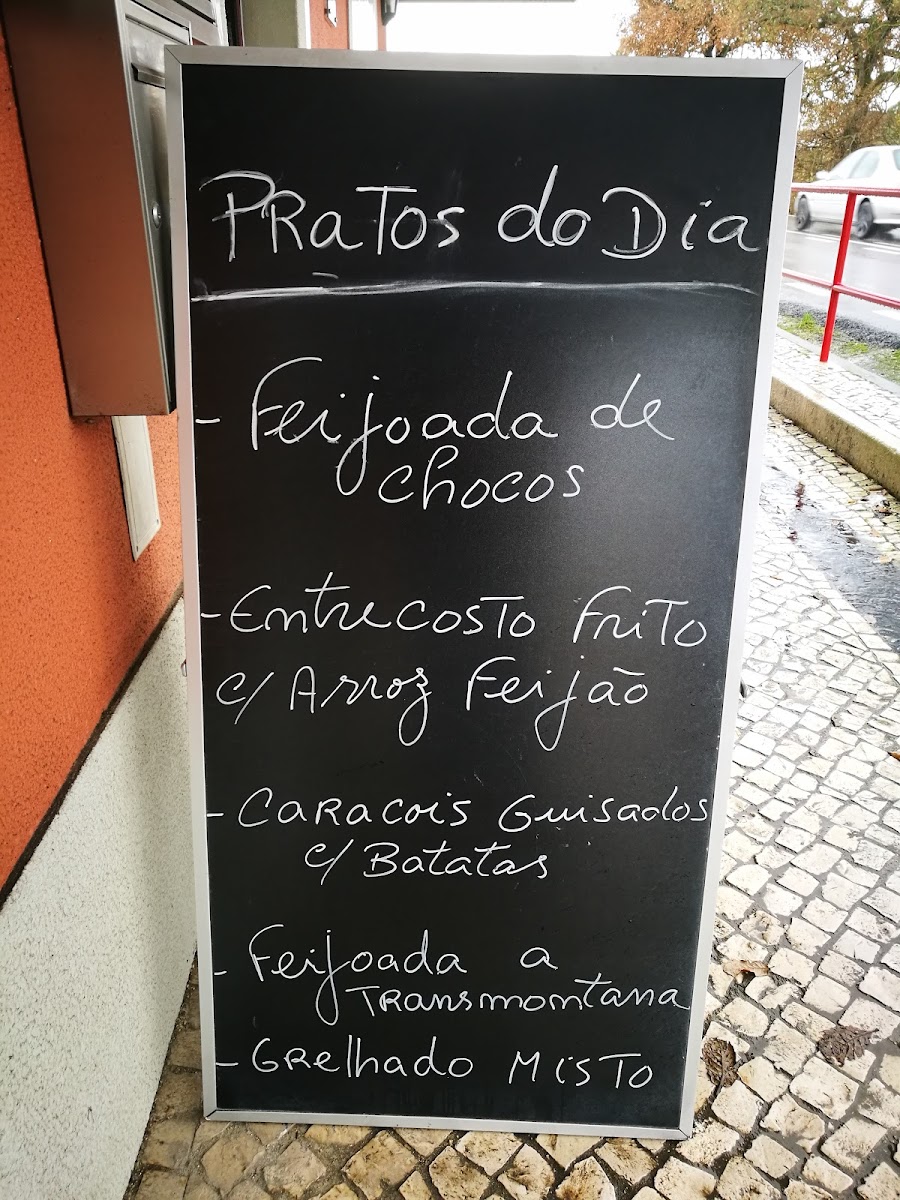 PRaTos do Dia
- Feijoada de
chocos
- Entrecosto Frito
c/ Arroz Feijão
- Caracois Guisados
c/ Batatas
- Feijoada a
Transmontana
- Grelhado Misto